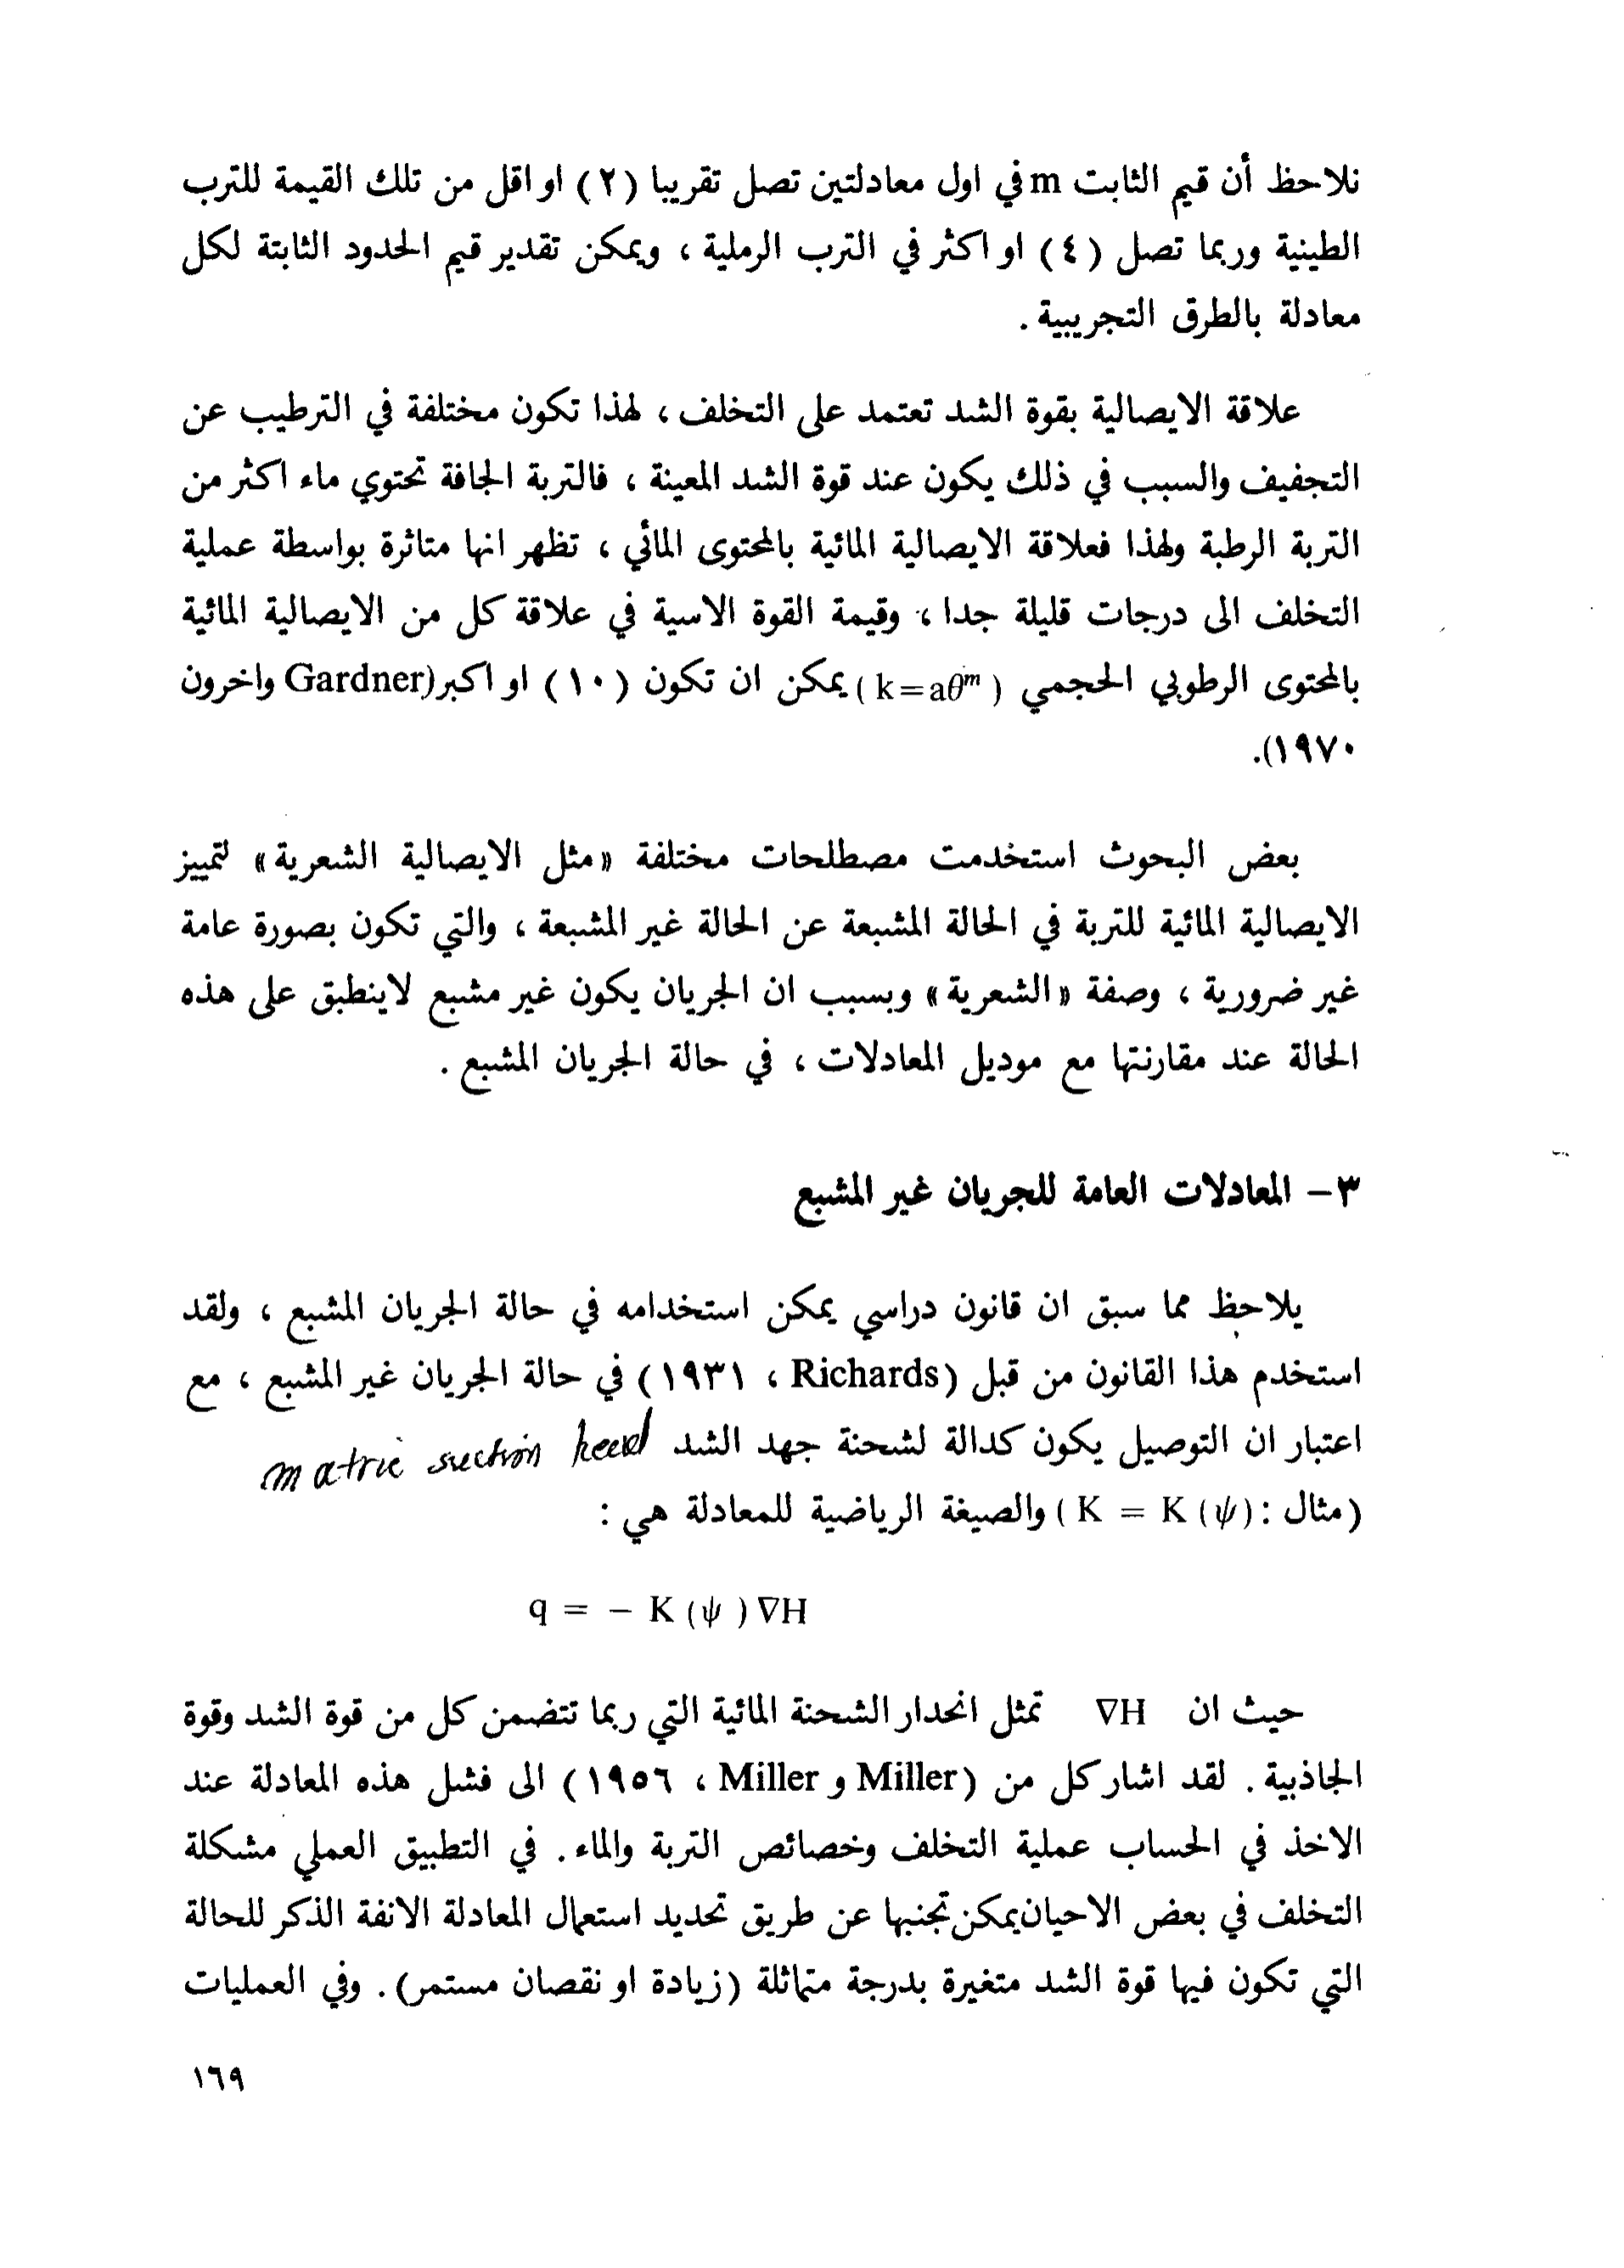 نلاحظ أن قيم الثابت m في اول معادلتين تصل تقريبا (٢) او اقل من تلك القيمة للترب
الطينية وربما تصل (٤) او اكثر في الترب الرملية ، ويمكن تقدير قيم الحدود الثابتة لكل
معادلة بالطرق التجريبية .
علاقة الايصالية بقوة الشد تعتمد على التخلف ، لهذا تكون مختلفة في الترطيب عن
التجفيف والسبب في ذلك يكون عند قوة الشد المعينة ، فالتربة الجافة تحتوي ماء اكثر من
التربة الرطبة ولهذا فعلاقة الايصالية المائية بالمحتوى المائي ، تظهر انها متاثرة بواسطة عملية
التخلف الى درجات قليلة جدا ، وقيمة القوة الاسية في علاقة كل من الايصالية المائية
بالمحتوى الرطوبي الحجمي ( k=aθᵐ ) يمكن ان تكون (١٠) او اكبر(Gardner واخرون
١٩٧٠).
بعض البحوث استخدمت مصطلحات مختلفة «مثل الايصالية الشعرية» لتمييز
الايصالية المائية للتربة في الحالة المشبعة عن الحالة غير المشبعة ، والتي تكون بصورة عامة
غير ضرورية ، وصفة «الشعرية» وبسبب ان الجريان يكون غير مشبع لاينطبق على هذه
الحالة عند مقارنتها مع موديل المعادلات ، في حالة الجريان المشبع .
٣- المعادلات العامة للجريان غير المشبع
يلاحظ مما سبق ان قانون دراسي يمكن استخدامه في حالة الجريان المشبع ، ولقد
استخدم هذا القانون من قبل (Richards ، ١٩٣١) في حالة الجريان غير المشبع ، مع
اعتبار ان التوصيل يكون كدالة لشحنة جهد الشد matric suction head
(مثال : K = K (ψ) ) والصيغة الرياضية للمعادلة هي :
q = − K (ψ ) ∇H
حيث ان ∇H تمثل انحدار الشحنة المائية التي ربما تتضمن كل من قوة الشد وقوة
الجاذبية . لقد اشار كل من (Miller و Miller ، ١٩٥٦) الى فشل هذه المعادلة عند
الاخذ في الحساب عملية التخلف وخصائص التربة والماء . في التطبيق العملي مشكلة
التخلف في بعض الاحيان يمكن تجنبها عن طريق تحديد استعمال المعادلة الانفة الذكر للحالة
التي تكون فيها قوة الشد متغيرة بدرجة متماثلة (زيادة او نقصان مستمر) . وفي العمليات
١٦٩